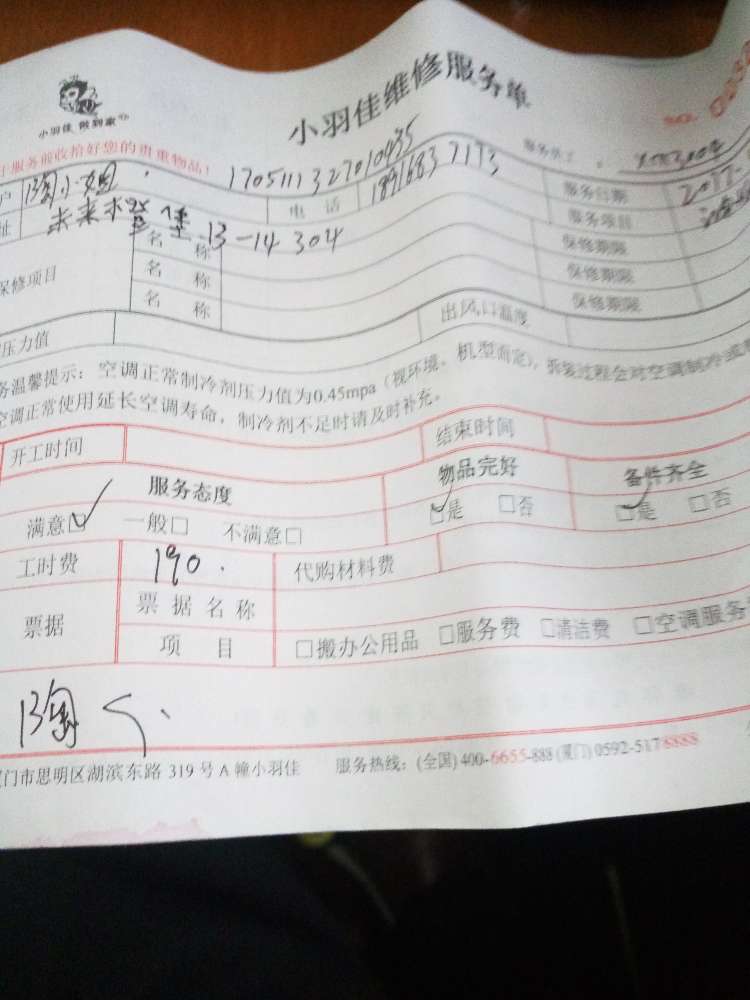 小羽佳维修服务单
小羽佳 做到家
服务前收拾好您的贵重物品!
服务员工:
户 陶小姐 1705111327010435
址 未来 13-14 304 电话 服务日期 2017
服务项目
保修项目 名称 保修期限
名称 保修期限
名称 保修期限
压力值 出风口温度
务温馨提示:空调正常制冷剂压力值为0.45mpa(视环境、机型而定),拆装过程会对空调制冷
空调正常使用延长空调寿命,制冷剂不足时请及时补充。
开工时间 结束时间
服务态度 物品完好 备件齐全
满意☑ 一般□ 不满意□ ☑是 □否 ☑是 □否
工时费 190. 代购材料费
票据 票据名称
项目 □搬办公用品 □服务费 □清洁费 □空调服务
陶
门市思明区湖滨东路 319 号 A 幢小羽佳 服务热线:(全国)400-6655-888 (厦门)0592-5178888